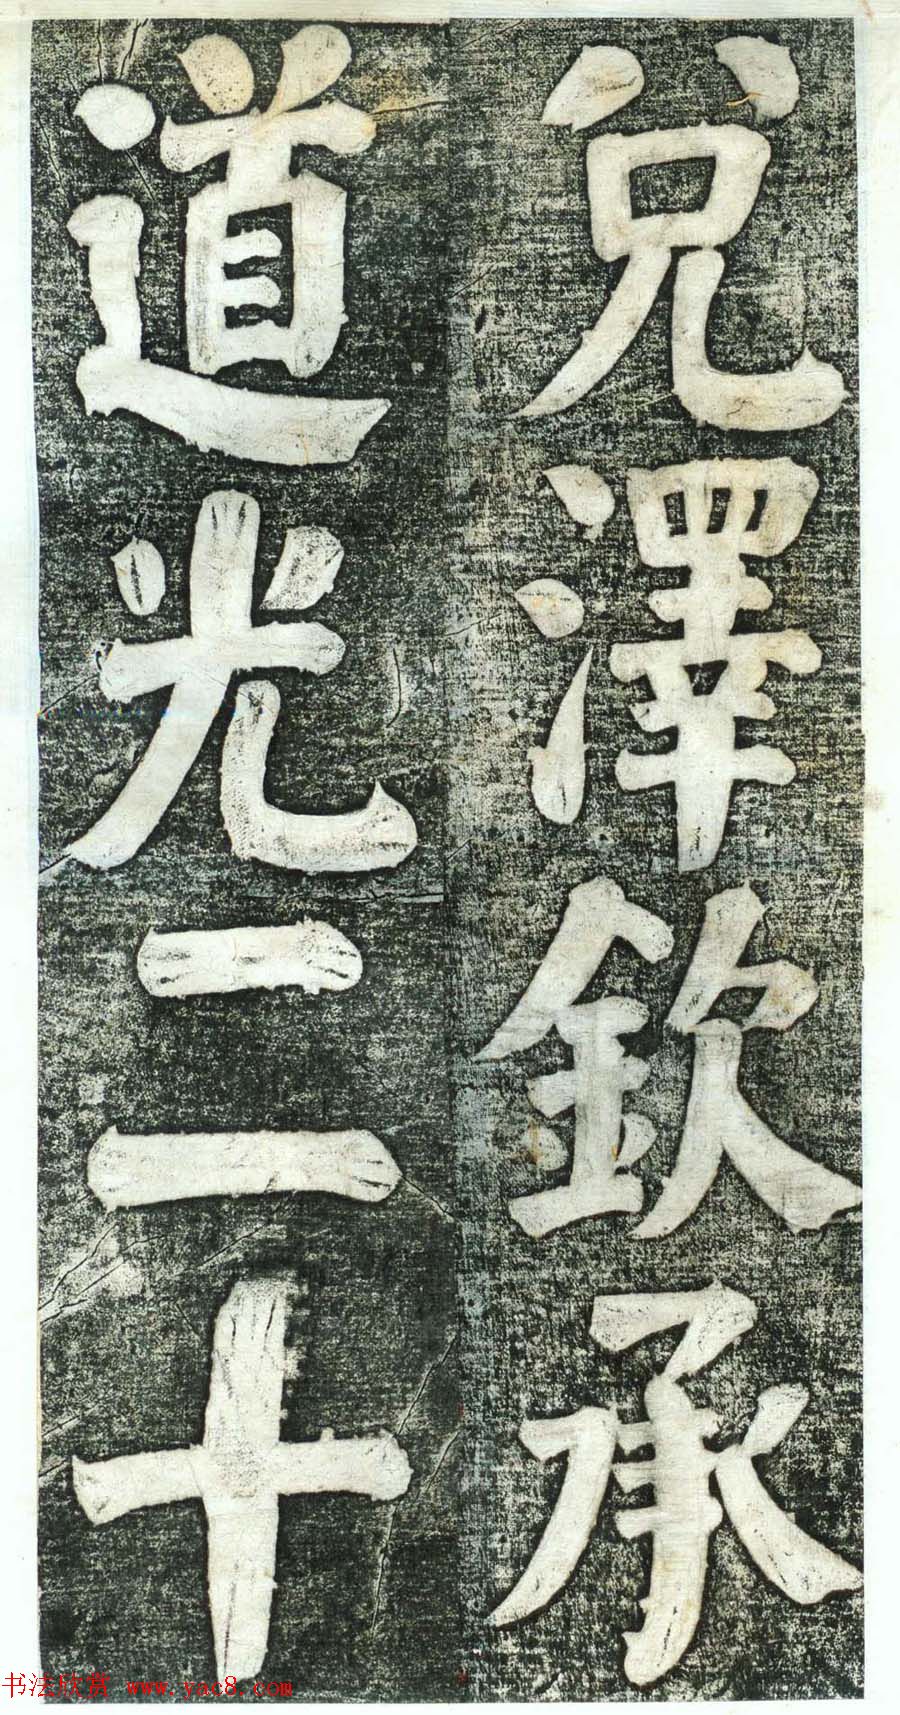 兌澤欽承
道光二十
书法欣赏 www.yac8.com